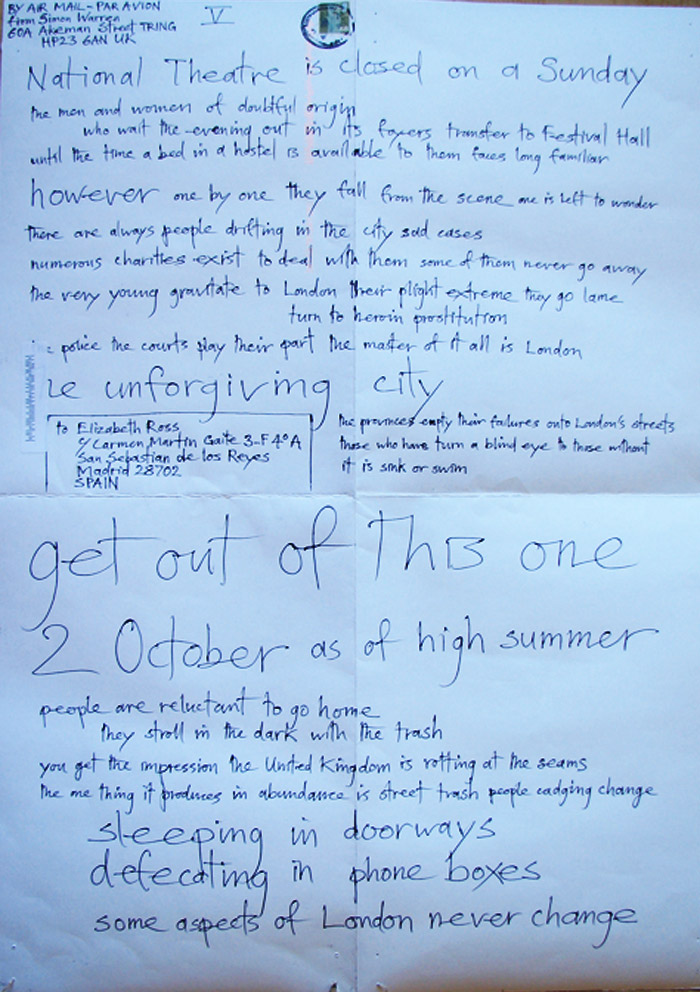 BY AIR MAIL - PAR AVION
from Simon Warren
60A Akeman Street TRING
HP23 6AN UK
V
National Theatre is closed on a Sunday
the men and women of doubtful origin
who wait the evening out in its foyers transfer to Festival Hall
until the time a bed in a hostel is available to them faces long familiar
however one by one they fall from the scene one is left to wonder
there are always people drifting in the city sad cases
numerous charities exist to deal with them some of them never go away
the very young gravitate to London their plight extreme they go lame
turn to heroin prostitution
police the courts play their part the master of it all is London
unforgiving city
to Elizabeth Ross
c/ Carmen Martin Gaite 3-F 4º A
San Sebastian de los Reyes
Madrid 28702
SPAIN
the provinces empty their failures onto London's streets
those who have turn a blind eye to those without
it is sink or swim
get out of this one
2 October as of high summer
people are reluctant to go home
they stroll in the dark with the trash
you get the impression the United Kingdom is rotting at the seams
the one thing it produces in abundance is street trash people cadging change
sleeping in doorways
defecating in phone boxes
some aspects of London never change